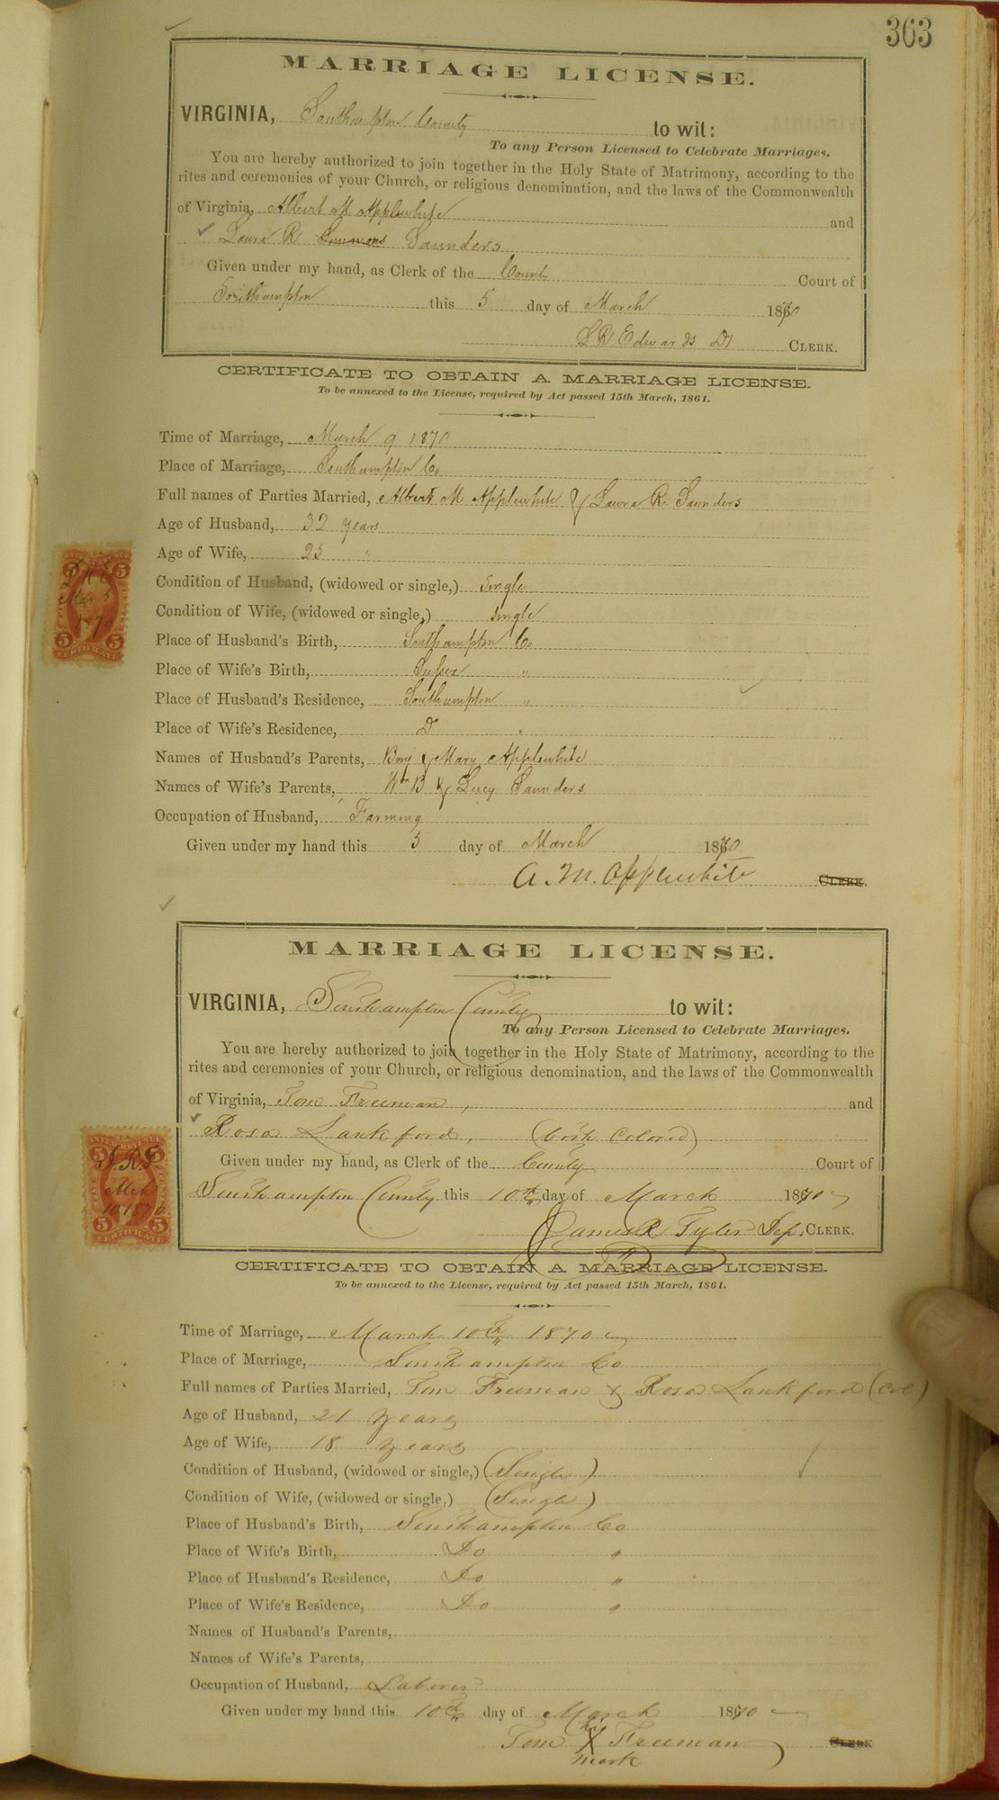 363
MARRIAGE LICENSE.
VIRGINIA, Southampton County to wit:
To any Person Licensed to Celebrate Marriages.
You are hereby authorized to join together in the Holy State of Matrimony, according to the
rites and ceremonies of your Church, or religious denomination, and the laws of the Commonwealth
of Virginia, Albert M Applewhite and
Laura R Simmons Saunders
Given under my hand, as Clerk of the County Court of
Southampton this 5 day of March 1870
L R Edwards D CLERK.
CERTIFICATE TO OBTAIN A MARRIAGE LICENSE.
To be annexed to the License, required by Act passed 15th March, 1861.
Time of Marriage, March 9 1870
Place of Marriage, Southampton Co
Full names of Parties Married, Albert M Applewhite & Laura R. Saunders
Age of Husband, 32 years
Age of Wife, 25 "
Condition of Husband, (widowed or single,) Single
Condition of Wife, (widowed or single,) single
Place of Husband's Birth, Southampton Co
Place of Wife's Birth, Sussex "
Place of Husband's Residence, Southampton "
Place of Wife's Residence, D "
Names of Husband's Parents, Benj & Mary Applewhite
Names of Wife's Parents, Wm B & Lucy Saunders
Occupation of Husband, Farming
Given under my hand this 5 day of March 1870
A. M. Applewhite CLERK.
5 5
Mar 5
1870
5 5
CERTIFICATE
MARRIAGE LICENSE.
VIRGINIA, Southampton County to wit:
To any Person Licensed to Celebrate Marriages.
You are hereby authorized to join together in the Holy State of Matrimony, according to the
rites and ceremonies of your Church, or religious denomination, and the laws of the Commonwealth
of Virginia, Tom Freeman, and
Rosa Lankford, (both Colored)
Given under my hand, as Clerk of the County Court of
Southampton County this 10th day of March 1870
James R Tyler Dep. CLERK.
CERTIFICATE TO OBTAIN A MARRIAGE LICENSE.
To be annexed to the License, required by Act passed 15th March, 1861.
Time of Marriage, March 10th 1870
Place of Marriage, Southampton Co
Full names of Parties Married, Tom Freeman & Rosa Lankford (col)
Age of Husband, 21 years
Age of Wife, 18 years
Condition of Husband, (widowed or single,) (Single)
Condition of Wife, (widowed or single,) (Single)
Place of Husband's Birth, Southampton Co
Place of Wife's Birth, Do "
Place of Husband's Residence, Do "
Place of Wife's Residence, Do "
Names of Husband's Parents,
Names of Wife's Parents,
Occupation of Husband, Laborer
Given under my hand this 10th day of March 1870
his
Tom X Freeman CLERK
mark
J.R.T
Mch
10 1870
5 5
CERTIFICATE